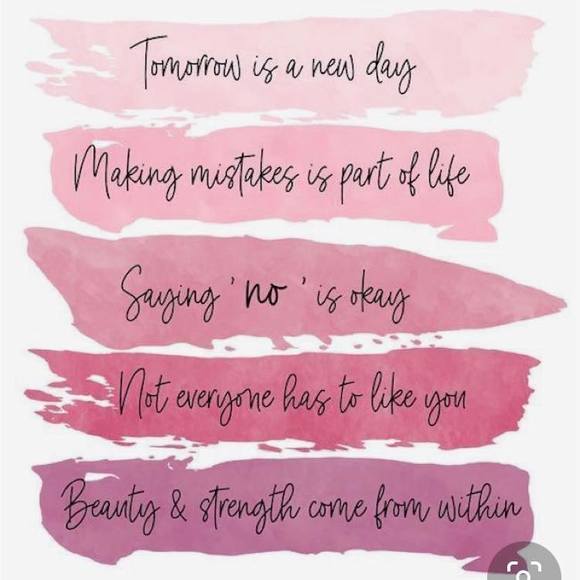 Tomorrow is a new day
Making mistakes is part of life
Saying 'no' is okay
Not everyone has to like you
Beauty & strength come from within